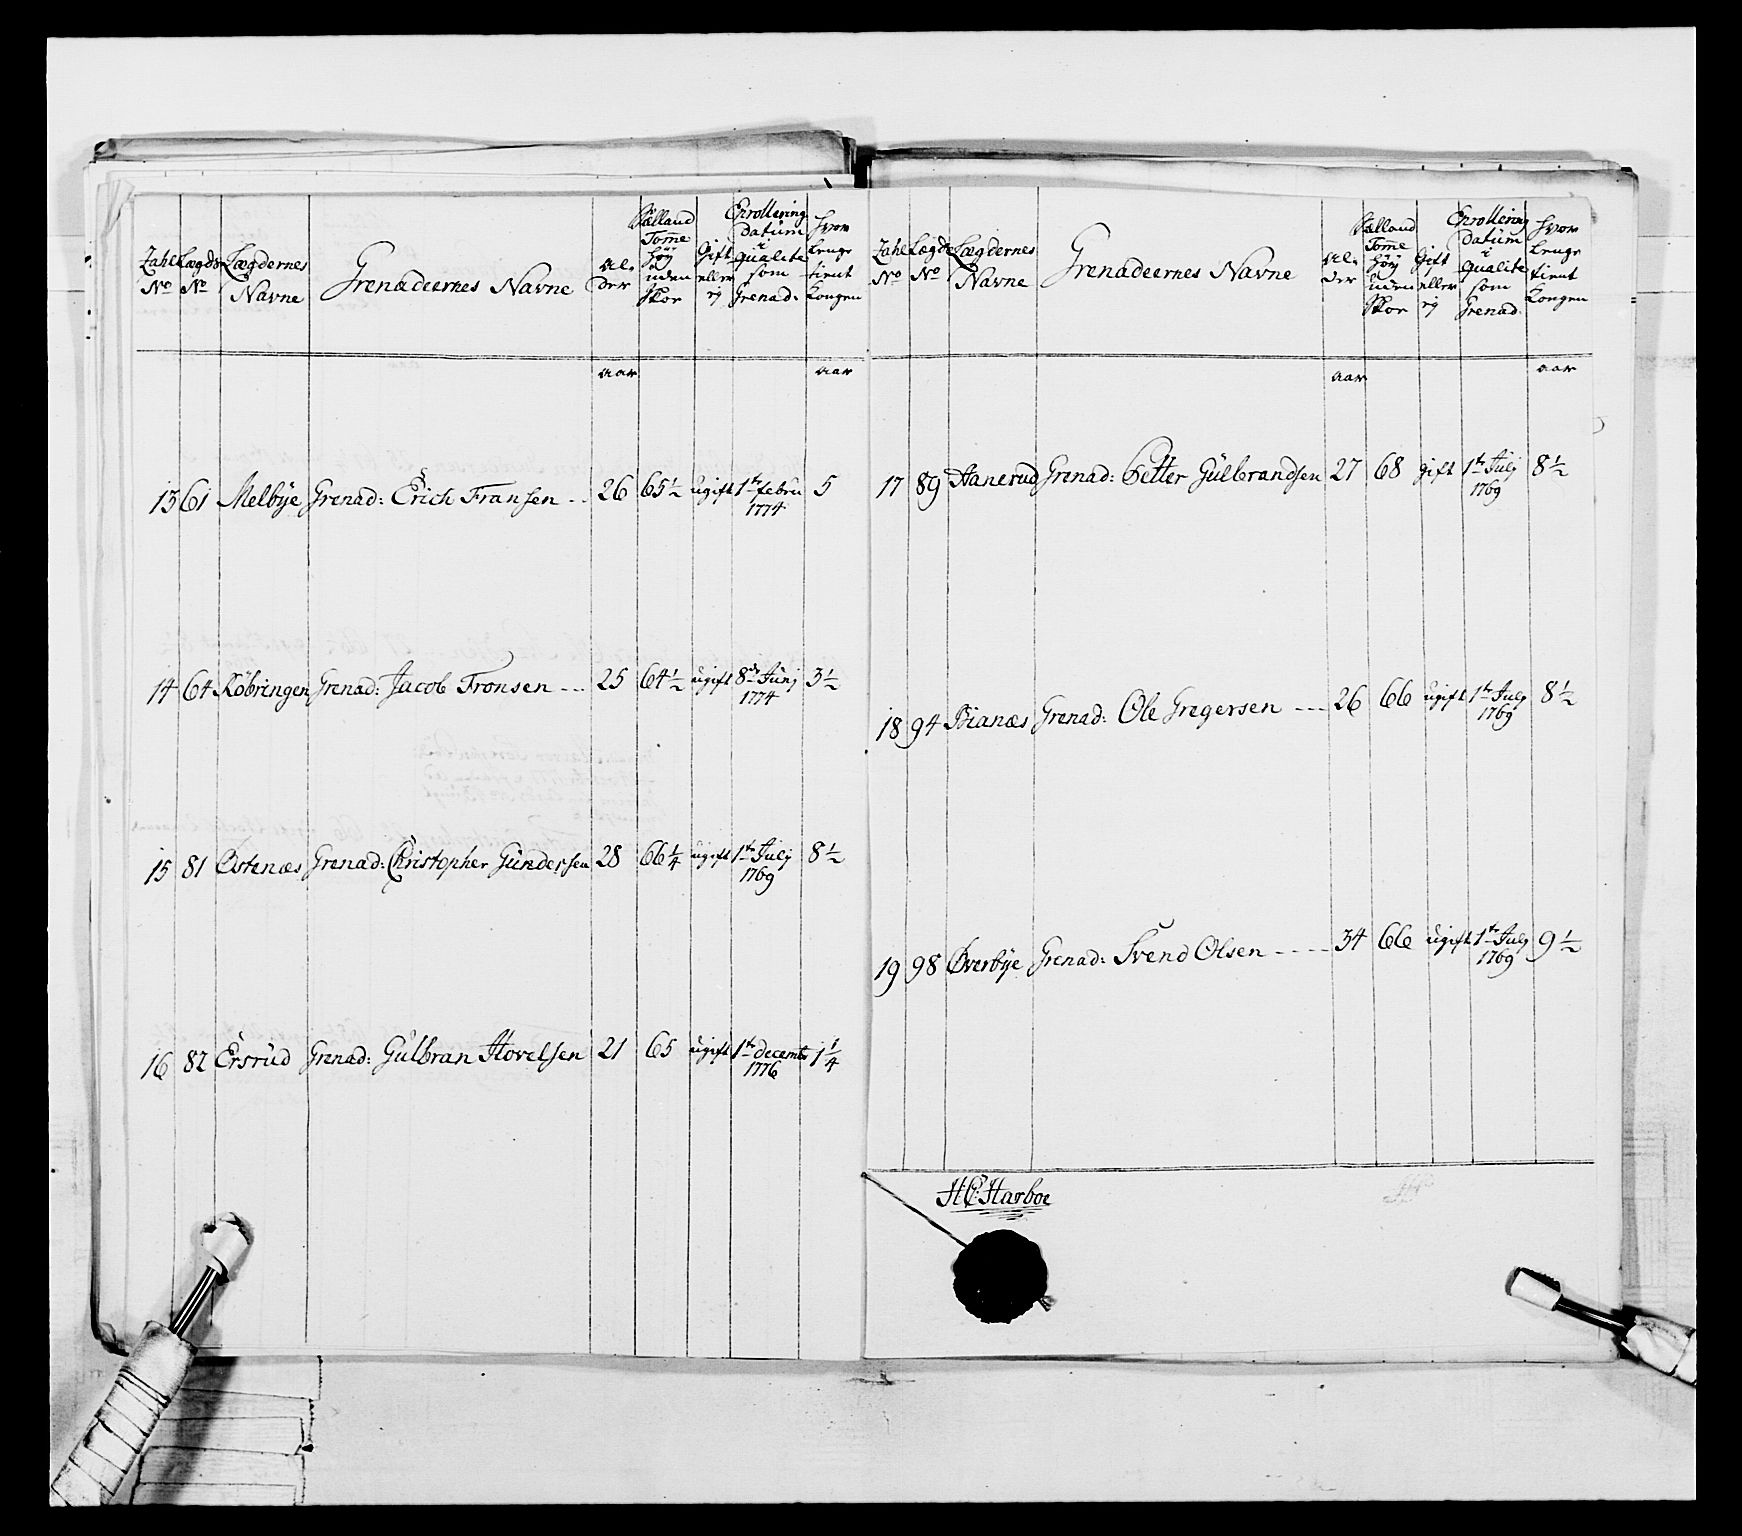 Zahl No | Lægds No | Lægdernes Navne | Grenadeernes Navne | Al- der | Sælland Tomme höy uden Skor | Gift eller ej | Enrollering Datum i qualite som Grenad: | Hvor lenge tient Kongen
aar | aar
13 | 61 | Melbÿe | Grenad: Erich Fransen | 26 | 65½ | ugift | 1te febru 1774 | 5
14 | 64 | Köbringen | Grenad: Jacob Fronsen | 25 | 64½ | ugift | 8de Junj 1774 | 3½
15 | 81 | Östenæs | Grenad: Christopher Gundersen | 28 | 66¼ | ugift | 1te Julj 1769 | 8½
16 | 82 | Ersrud | Grenad: Gulbran Hovelsen | 21 | 65 | ugift | 1te decembr 1776 | 1¼
Zahl No | Lægds No | Lægdernes Navne | Grenadeernes Navne | Al- der | Sælland Tomme höy uden Skor | Gift eller ej | Enrollering Datum i qualite som Grenad. | Hvor lenge tient Kongen
aar | aar
17 | 89 | Hanerud | Grenad: Petter Gulbrandsen | 27 | 68 | gift | 1te Julj 1769 | 8½
18 | 94 | Bianæs | Grenad: Ole Gregersen | 26 | 66 | ugift | 1te Julj 1769 | 8½
19 | 98 | Överbÿe | Grenad: Svend Olsen | 34 | 66 | ugift | 1te Julj 1769 | 9½
HC: Harboe